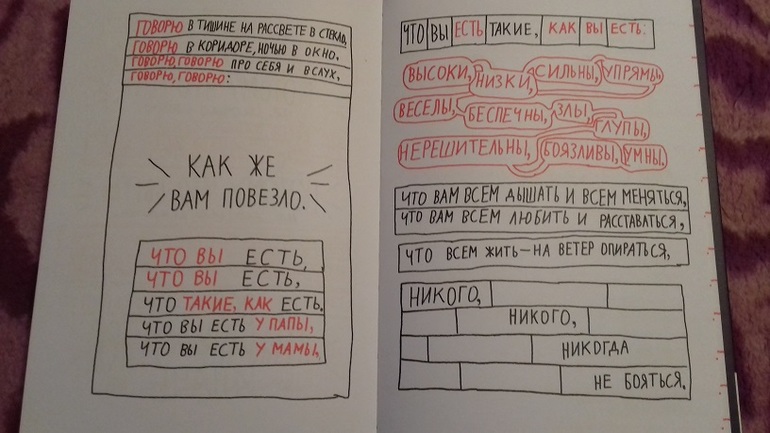 ГОВОРЮ В ТИШИНЕ НА РАССВЕТЕ В СТЕКЛО,
ГОВОРЮ В КОРИДОРЕ, НОЧЬЮ В ОКНО.
ГОВОРЮ, ГОВОРЮ ПРО СЕБЯ И ВСЛУХ,
ГОВОРЮ, ГОВОРЮ:
КАК ЖЕ
ВАМ ПОВЕЗЛО.
ЧТО ВЫ ЕСТЬ,
ЧТО ВЫ ЕСТЬ,
ЧТО ТАКИЕ, КАК ЕСТЬ.
ЧТО ВЫ ЕСТЬ У ПАПЫ,
ЧТО ВЫ ЕСТЬ У МАМЫ,
ЧТО ВЫ ЕСТЬ ТАКИЕ, КАК ВЫ ЕСТЬ:
ВЫСОКИ, НИЗКИ, СИЛЬНЫ, УПРЯМЫ,
ВЕСЕЛЫ, БЕСПЕЧНЫ, ЗЛЫ, ГЛУПЫ,
НЕРЕШИТЕЛЬНЫ, БОЯЗЛИВЫ, УМНЫ.
ЧТО ВАМ ВСЕМ ДЫШАТЬ И ВСЕМ МЕНЯТЬСЯ,
ЧТО ВАМ ВСЕМ ЛЮБИТЬ И РАССТАВАТЬСЯ,
ЧТО ВСЕМ ЖИТЬ — НА ВЕТЕР ОПИРАТЬСЯ,
НИКОГО,
НИКОГО,
НИКОГДА
НЕ БОЯТЬСЯ.